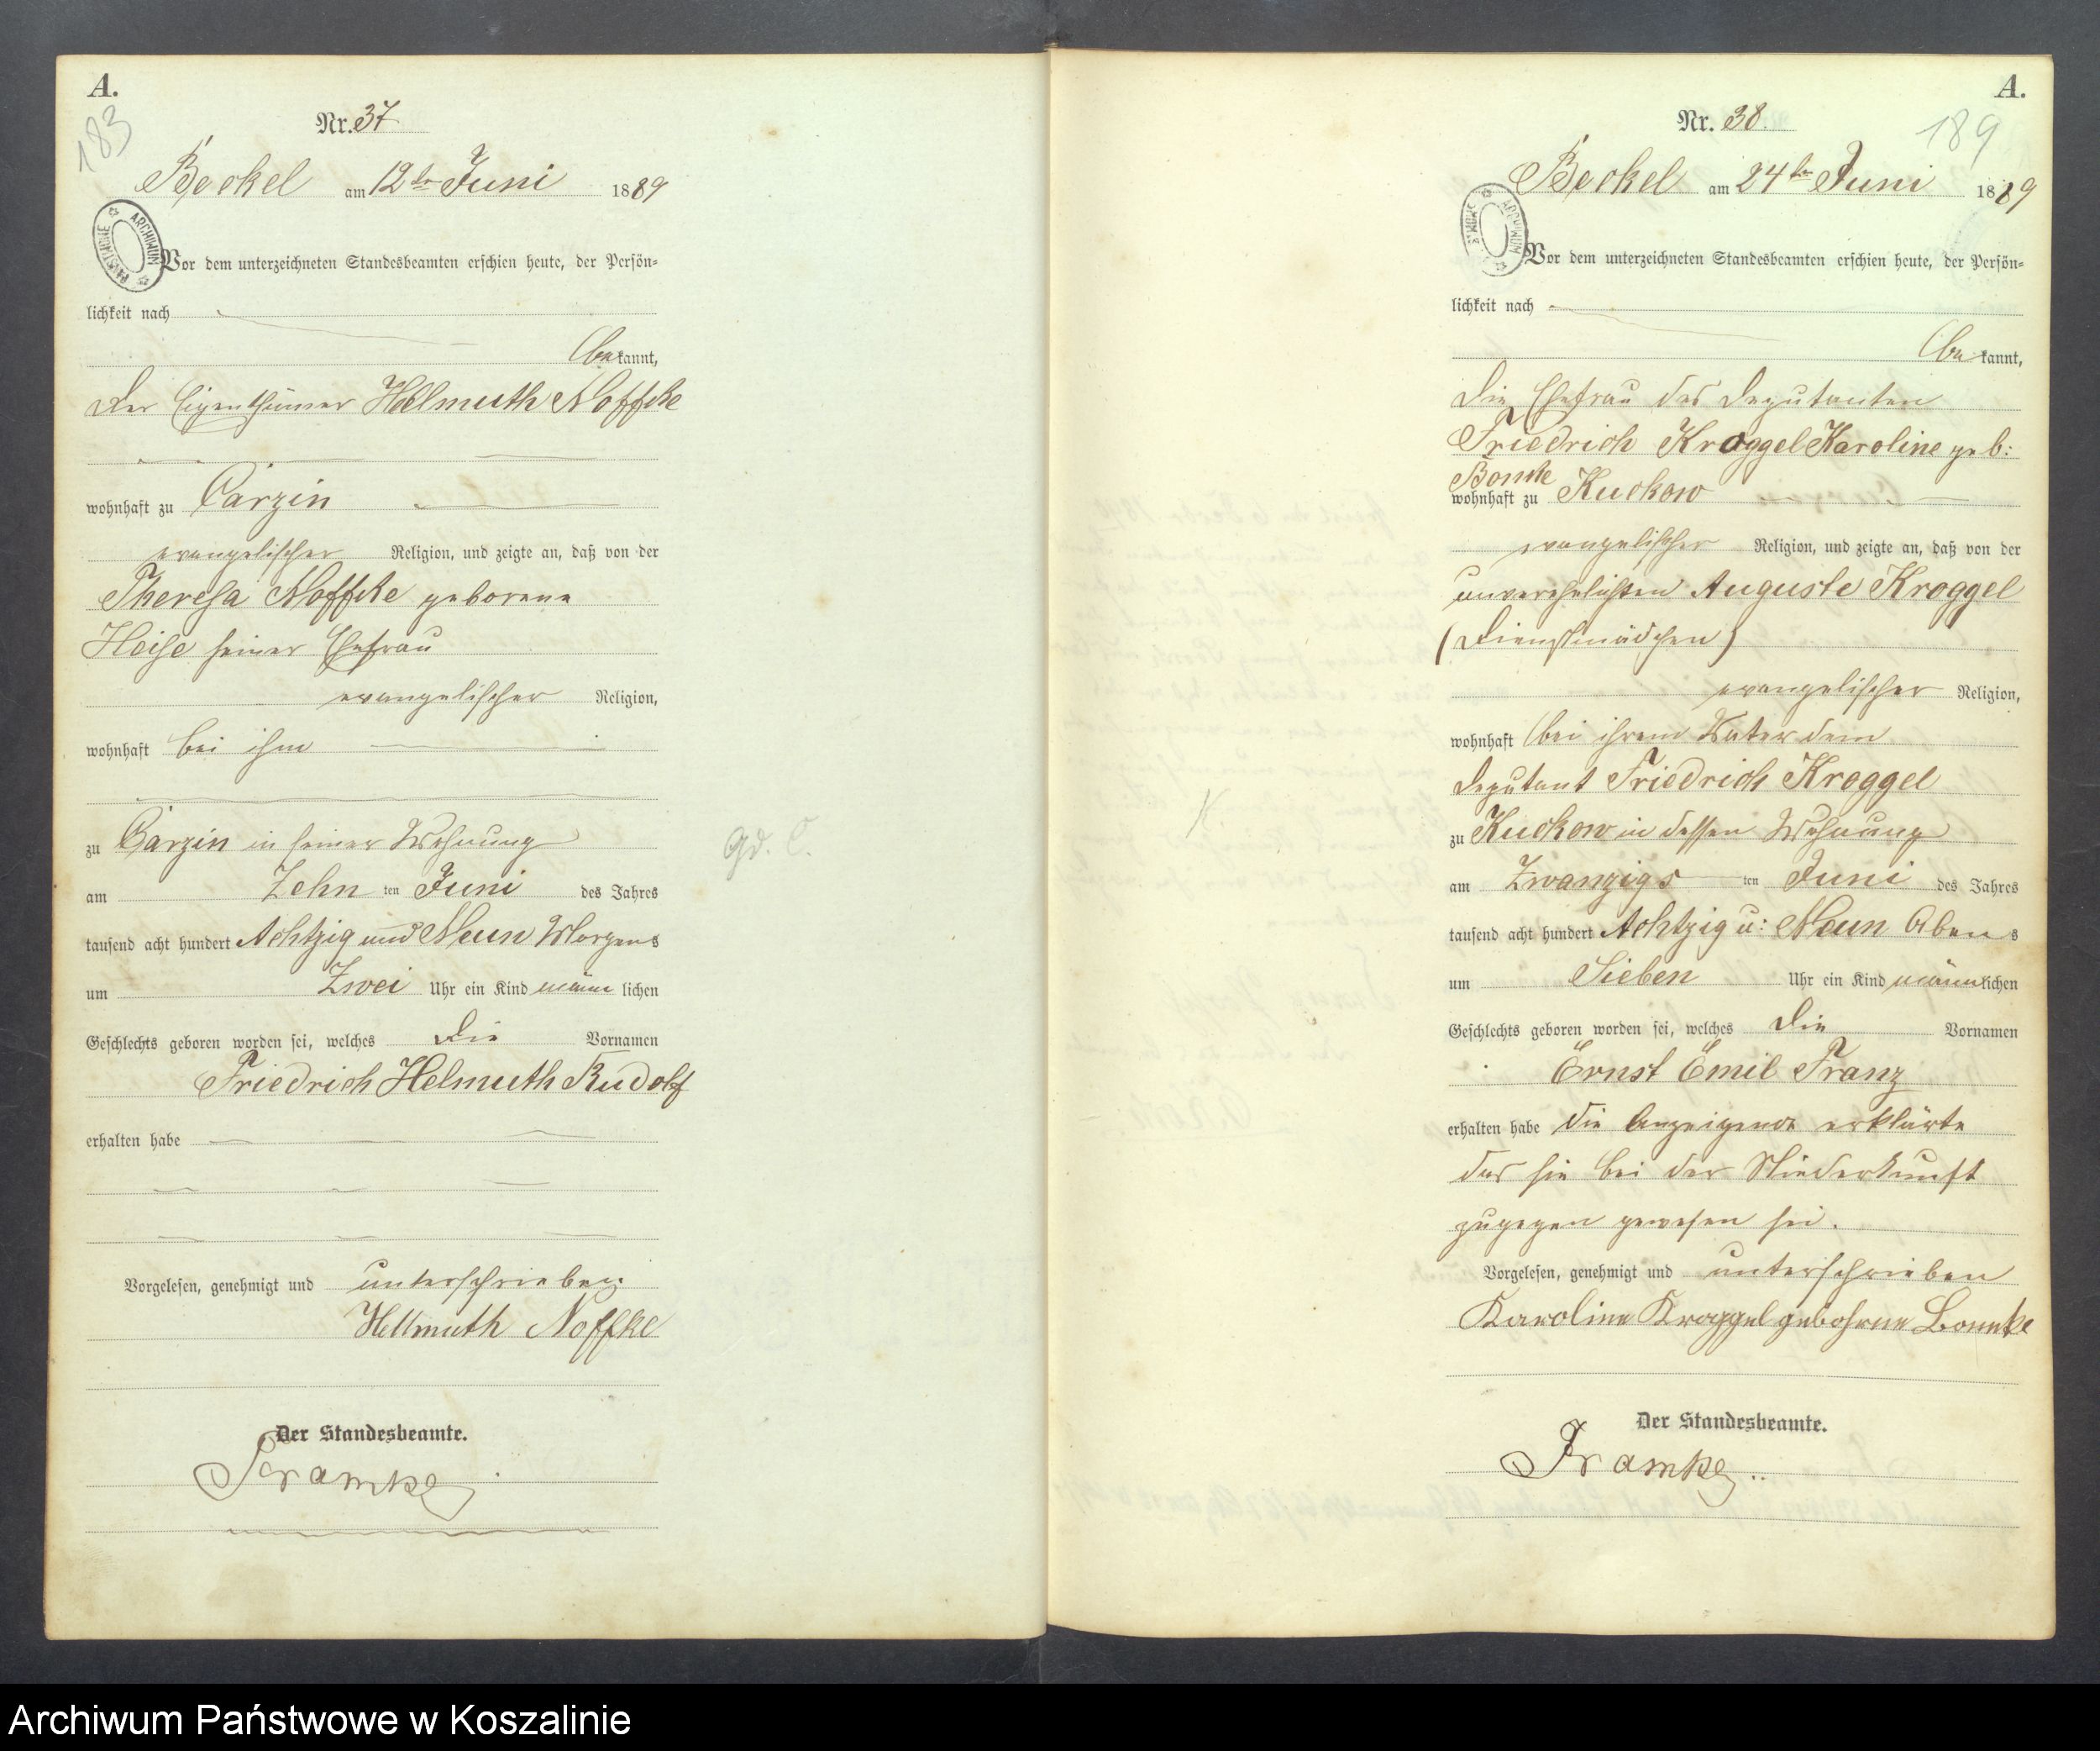 A.
183
Nr. 37
Beckel am 12ten Juni 1889
Vor dem unterzeichneten Standesbeamten erschien heute, der Persön=
lichkeit nach
bekannt,
der Eigenthümer Helmuth Noffcke
wohnhaft zu Carzin
evangelischer Religion, und zeigte an, daß von der
Theresa Noffcke geborene
Heise seiner Ehefrau
evangelischer Religion,
wohnhaft bei ihm
zu Carzin in seiner Wohnung
am Zehn ten Juni des Jahres
tausend acht hundert Achtzig und Neun Morgens
um Zwei Uhr ein Kind männlichen
Geschlechts geboren worden sei, welches die Vornamen
Friedrich Helmuth Rudolf
erhalten habe
Vorgelesen, genehmigt und unterschrieben
Hellmuth Noffke
Der Standesbeamte.
Framke
Gd. C.
A.
189
Nr. 38
Beckel am 24ten Juni 1889
Vor dem unterzeichneten Standesbeamten erschien heute, der Persön=
lichkeit nach
bekannt,
die Ehefrau des Deputanten
Friedrich Kroggel Karoline geb:
Bonke
wohnhaft zu Kuckow
evangelischer Religion, und zeigte an, daß von der
unverehelichten Auguste Kroggel
(Dienstmädchen)
evangelischer Religion,
wohnhaft bei ihrem Vater dem
Deputant Friedrich Kroggel
zu Kuckow in dessen Wohnung
am Zwanzigs ten Juni des Jahres
tausend acht hundert Achtzig u: Neun Abens
um Sieben Uhr ein Kind männlichen
Geschlechts geboren worden sei, welches die Vornamen
Ernst Emil Franz
erhalten habe die Anzeigende erklärte
das sie bei der Niederkunft
zugegen gewesen sei.
Vorgelesen, genehmigt und unterschrieben
Karoline Kroggel gebohrne Bonnke
Der Standesbeamte.
Framke
ARCHIWUM PAŃSTWOWE
Archiwum Państwowe w Koszalinie